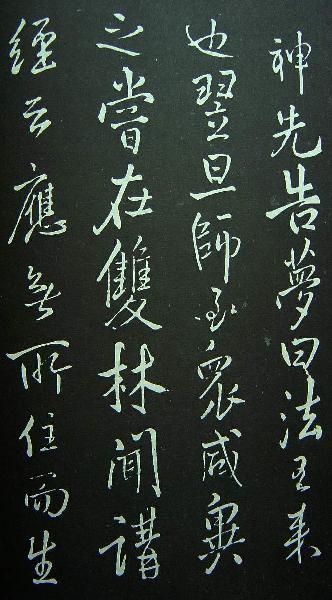 神先告夢曰法王來
也翌旦師至眾咸異
之嘗在雙林間講
經云應無所住而生